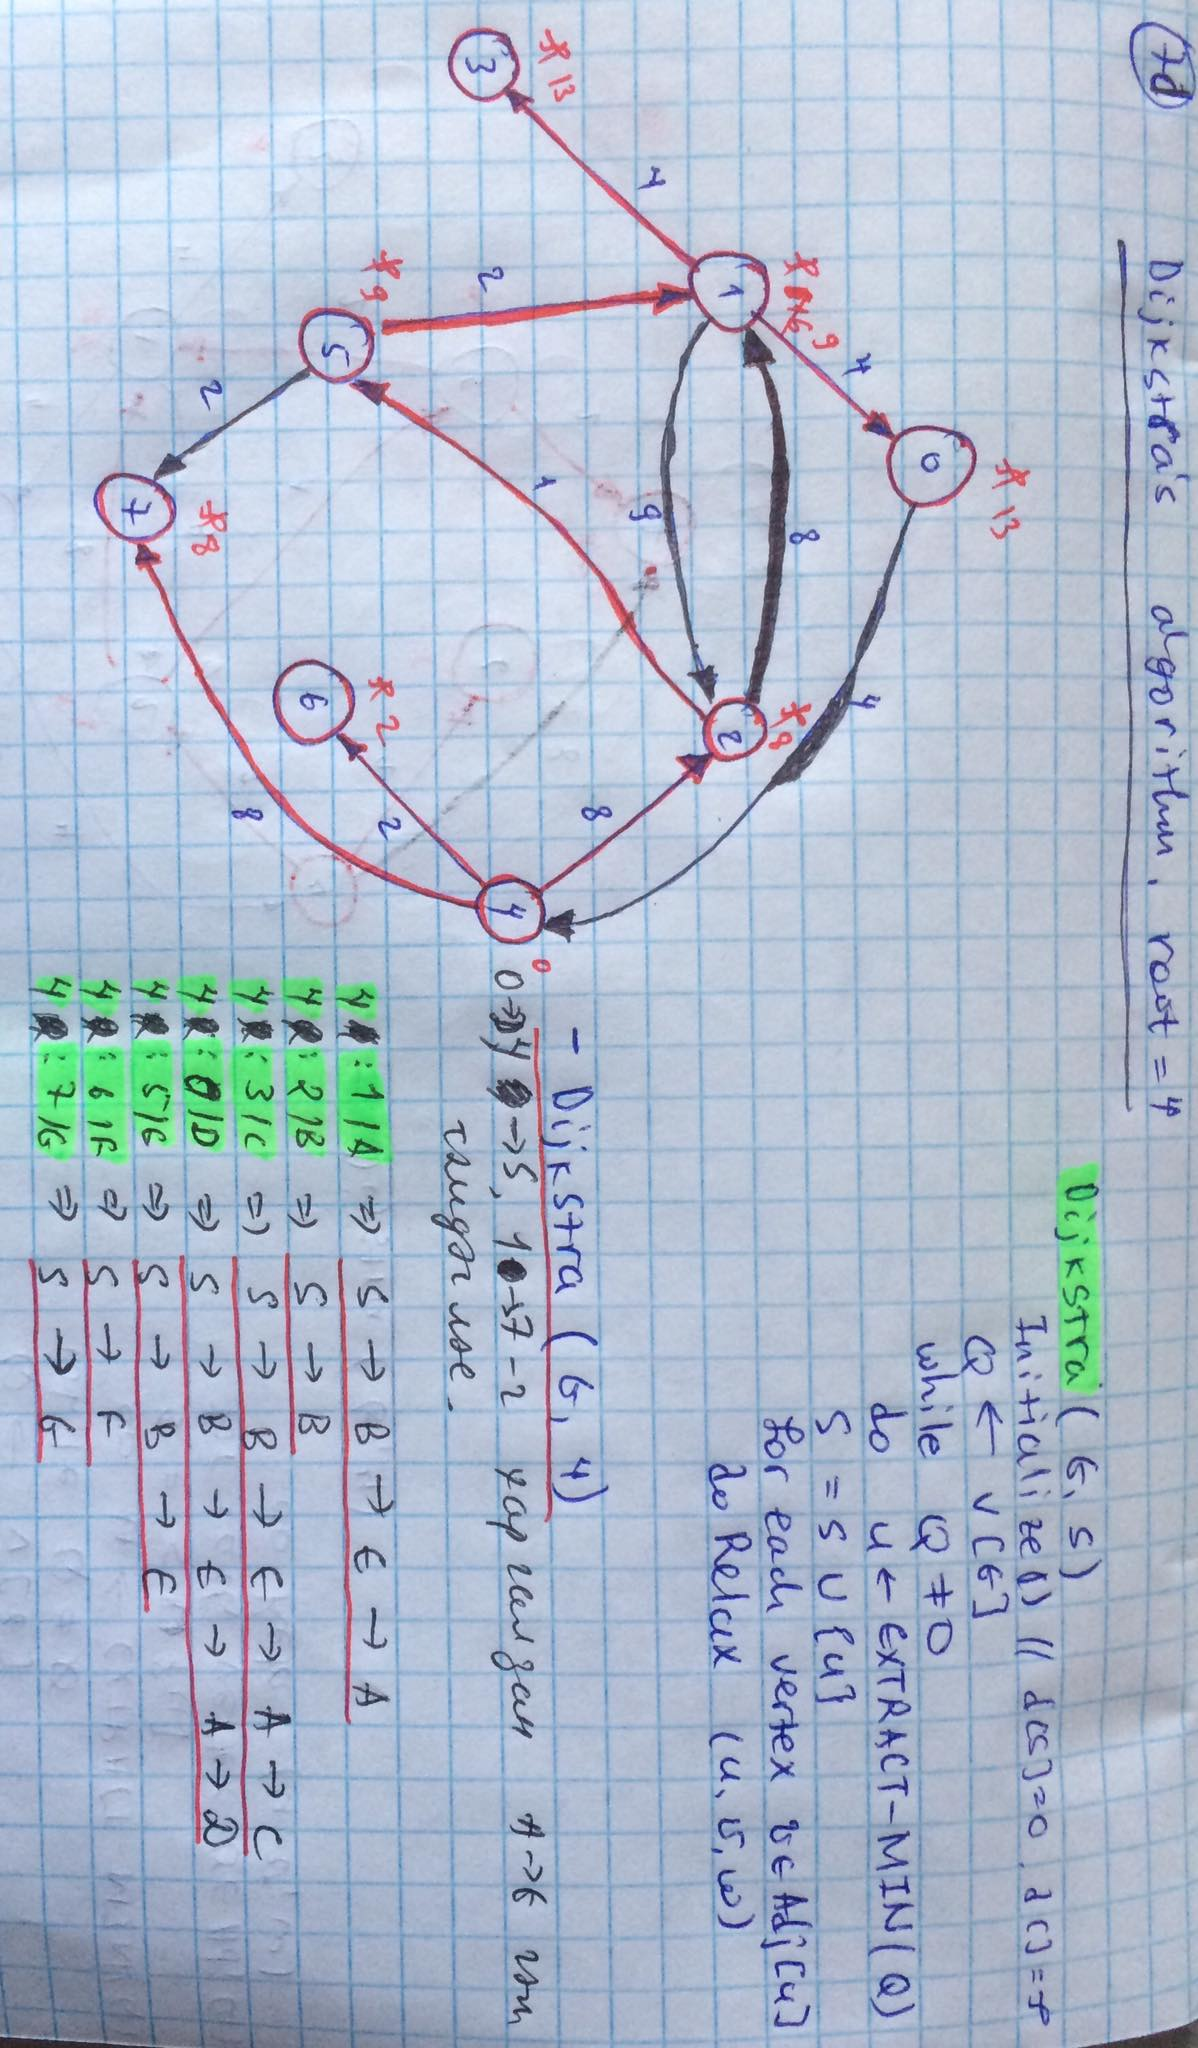 7d
Dijkstra's algorithm. root = 4
Dijkstra (G, S)
Initialize() // d[S]=0, d[]=
Q ← V[G]
while Q ≠ 0
do u ← EXTRACT-MIN(Q)
S = S ∪ {u}
for each vertex v ∈ Adj[u]
do Relax (u, v, w)
- Dijkstra (G, 4)
→ S, 1 → 7-г харгалзан A → G гэж
тэмдэглэе.
4 : 1/A ⇒ S → B → E → A
4 : 2/B ⇒ S → B
4 : 3/C ⇒ S → B → E → A → C
4 : 0/D ⇒ S → B → E → A → D
4 : 5/E ⇒ S → B → E
4 : 6/F ⇒ S → F
4 : 7/G ⇒ S → G
3
13
4
1
9
4
0
13
2
5
9
2
7
8
1
9
8
4
2
8
6
2
8
2
8
4
0